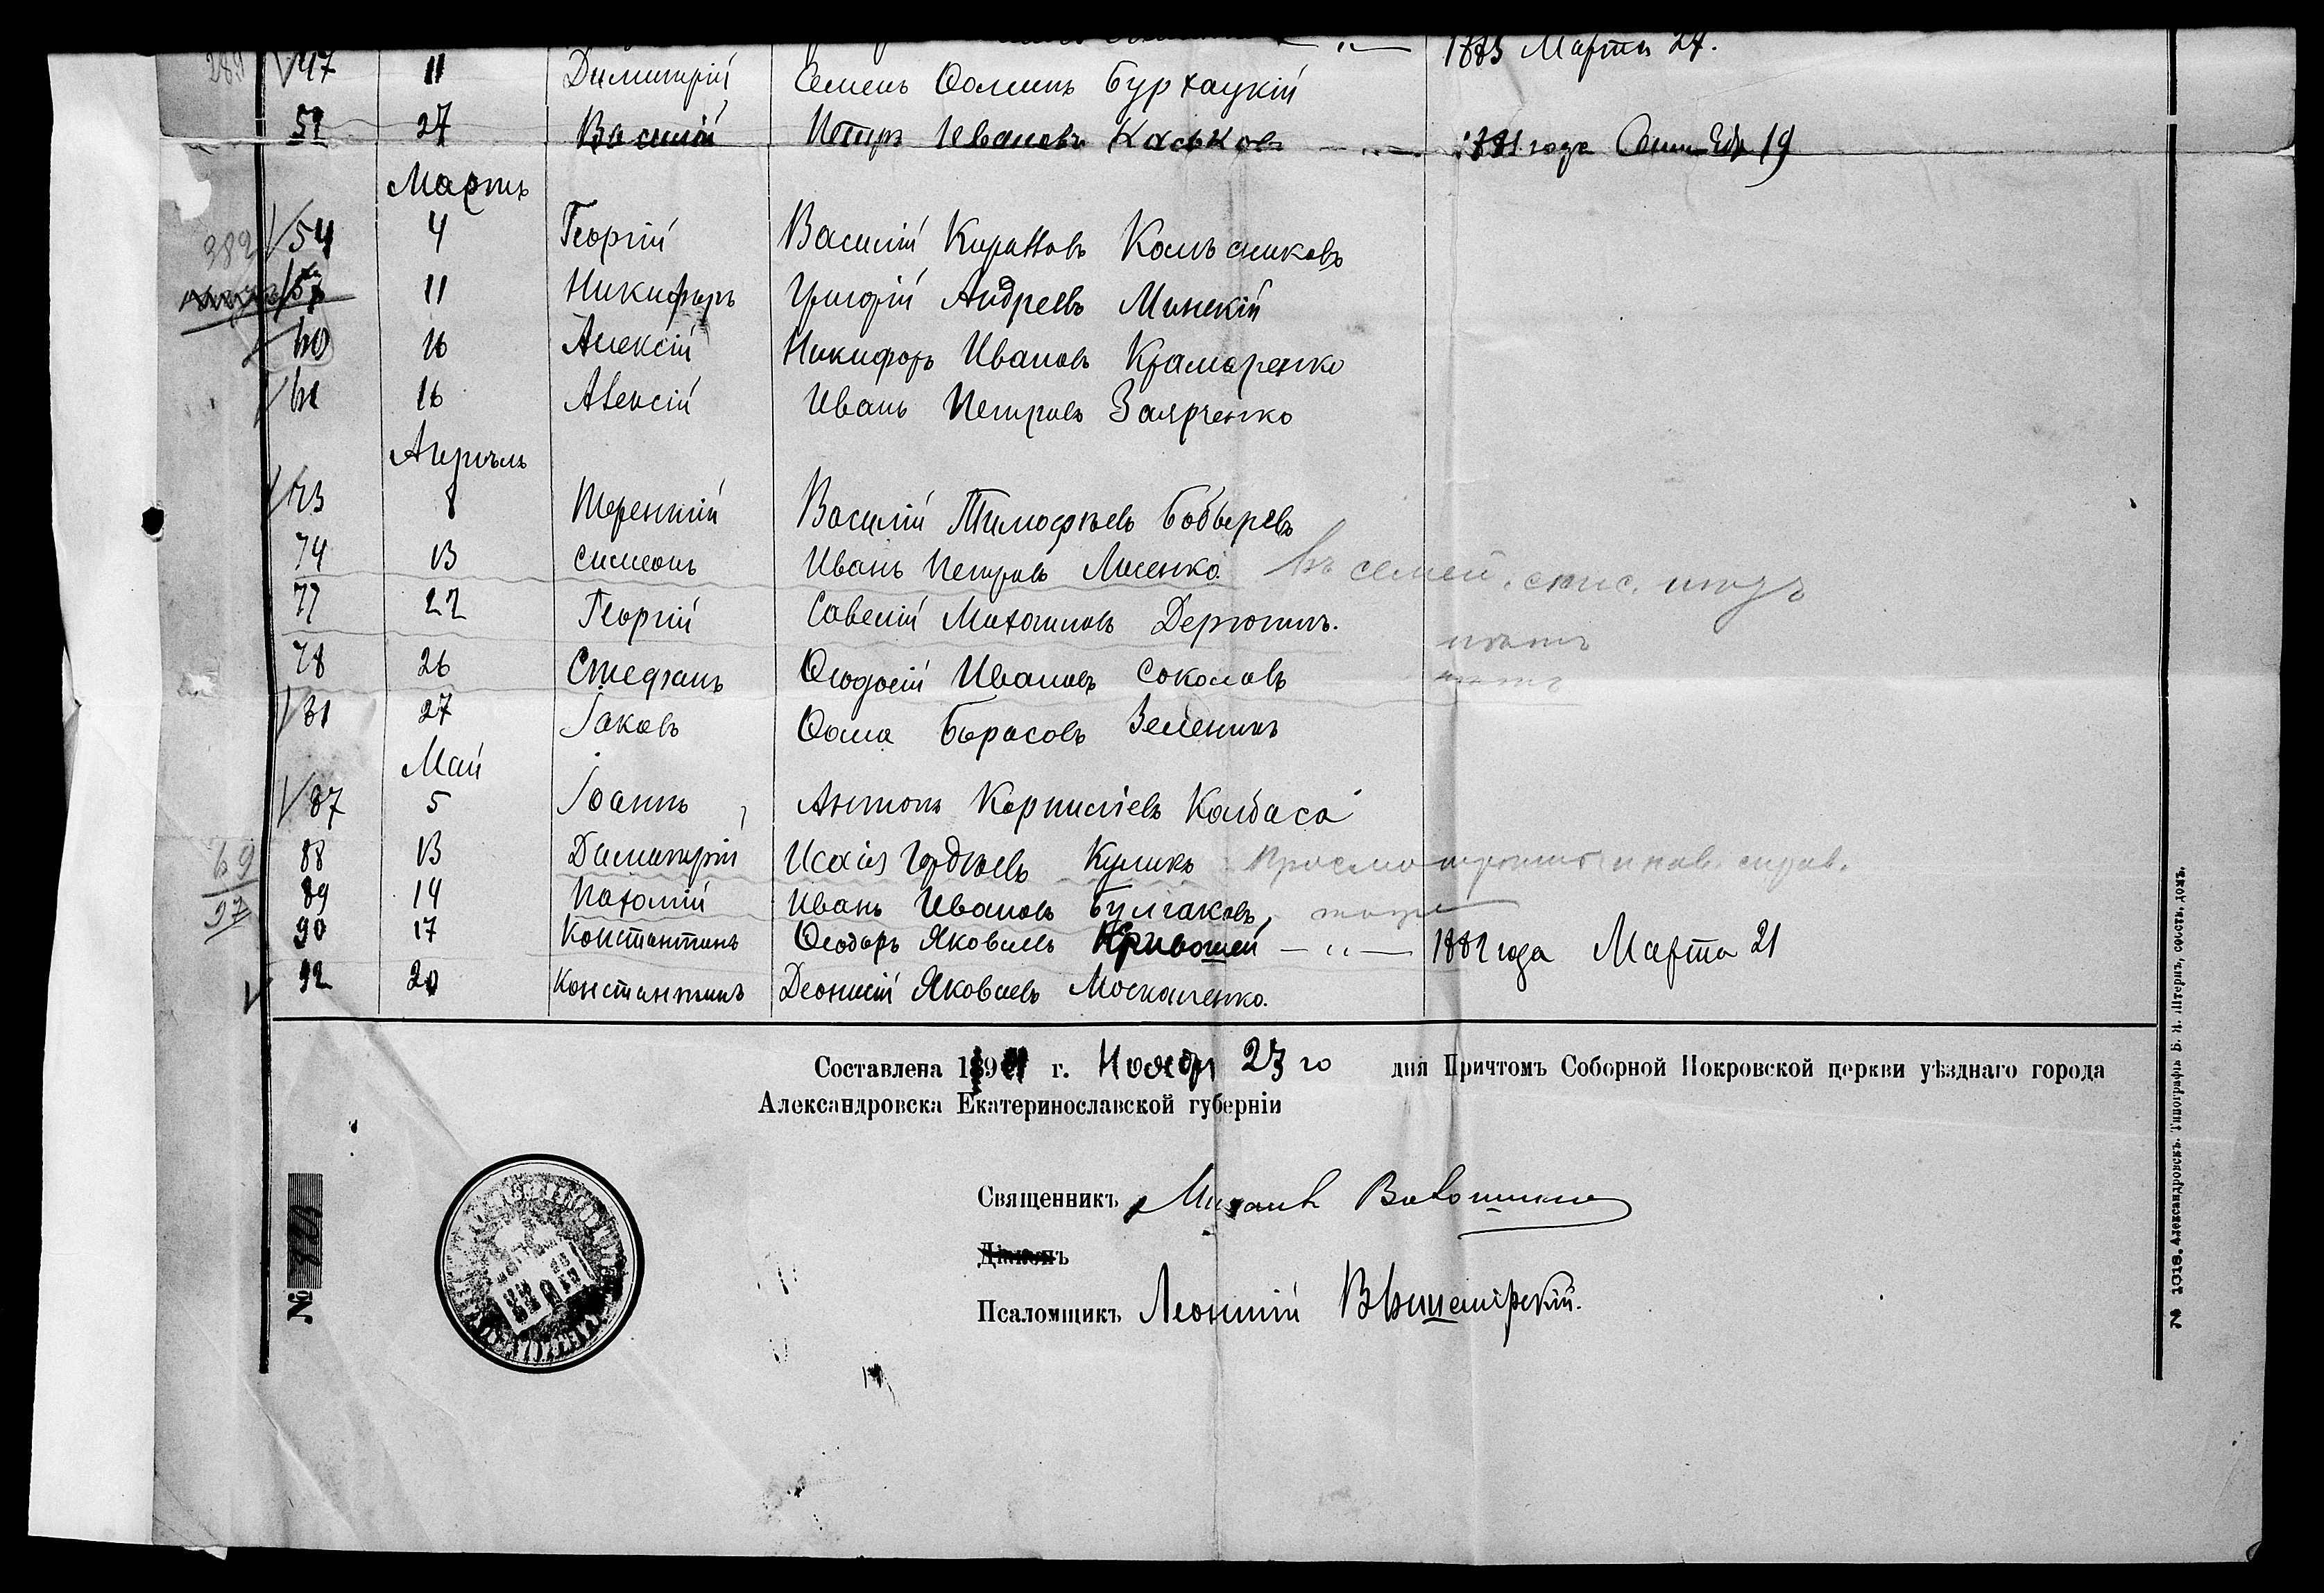 1883 Марта 27.
289 47 11 Димитрій Семенъ Ѳоминъ Бурхацкій
52 27 Василій Петръ Ивановъ Каськовъ — „ — 1881 года 19
Мартъ
382 54 4 Георгій Василій Кирилловъ Колѣсниковъ
57 11 Никифоръ Григорій Андреевъ Минскій
60 16 Алексій Никифоръ Ивановъ Крамаренко
61 16 Алексій Иванъ Петровъ Заярченко
Апрѣль
73 8 Терентій Василій Тимофѣевъ Бобыревъ
74 13 Симеонъ Иванъ Петровъ Лисенко въ семей. спис.
77 22 Георгій Савелій Михаиловъ Дерюгинъ.
78 26 Стефанъ Ѳеодосій Ивановъ Соколовъ
81 27 Іаковъ Ѳома Борисовъ Зеленинъ
Май
87 5 Іоаннъ Антонъ Корниліевъ Колбаса
69 88 13 Димитрій Исаія Гордѣевъ Куликъ
97 89 14 Пахомій Иванъ Ивановъ Булгаковъ, тоже
90 17 Константинъ Ѳеодоръ Яковлевъ Кривошей — „ — 1882 года Марта 21
92 20 Константинъ Деонисій Яковлевъ Москаленко.
Составлена 1901 г. Ноябр 23 го дня Причтомъ Соборной Покровской церкви уѣзднаго города
Александровска Екатеринославской губерніи
Священникъ Михаилъ Волошинъ
Діаконъ
Псаломщикъ Леонтій Вышемірскій.
№
№ 1018. Александровскъ. Типографія Б. И. Штернъ, собств. домъ.